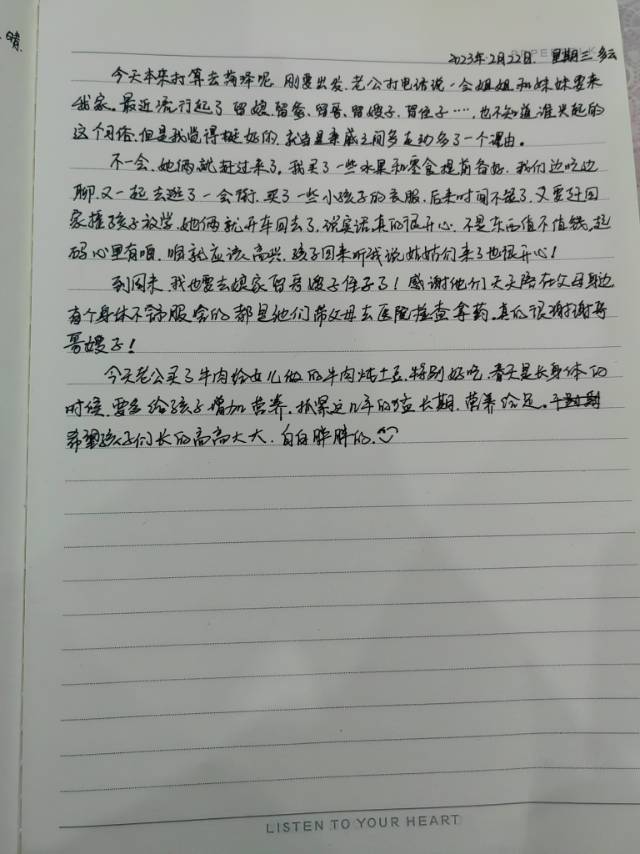 晴
2023年2月22日 星期三 多云
今天本来打算去菏泽呢，刚要出发，老公打电话说一会姐姐和妹妹要来
我家。最近流行起了留娘、留爸、留哥、留嫂子、留侄子……，也不知道谁兴起的
这个习俗，但是我觉得挺好的，就当是亲戚之间多互动多了一个理由。
不一会，她俩就赶过来了，我买了一些水果和零食提前备好，我们边吃边
聊，又一起去逛了一会街，买了一些小孩子的衣服，后来时间不够了，又要赶回
家接孩子放学，她俩就开车回去了，说实话真的很开心，不是东西值不值钱，起
码心里有咱，咱就应该高兴，孩子回来听我说姑姑们来了也很开心！
到周末，我也要去娘家留哥嫂子侄子了！感谢他们天天陪在父母身边
有个身体不舒服啥的都是他们带父母去医院检查拿药。真的很谢谢哥
哥嫂子！
今天老公买了牛肉给女儿做的牛肉炖土豆，特别好吃，春天是长身体的
时候，要多给孩子增加营养，抓紧这几年的猛长期，营养给足。
希望孩子们长的高高大大，白白胖胖的。
LISTEN TO YOUR HEART